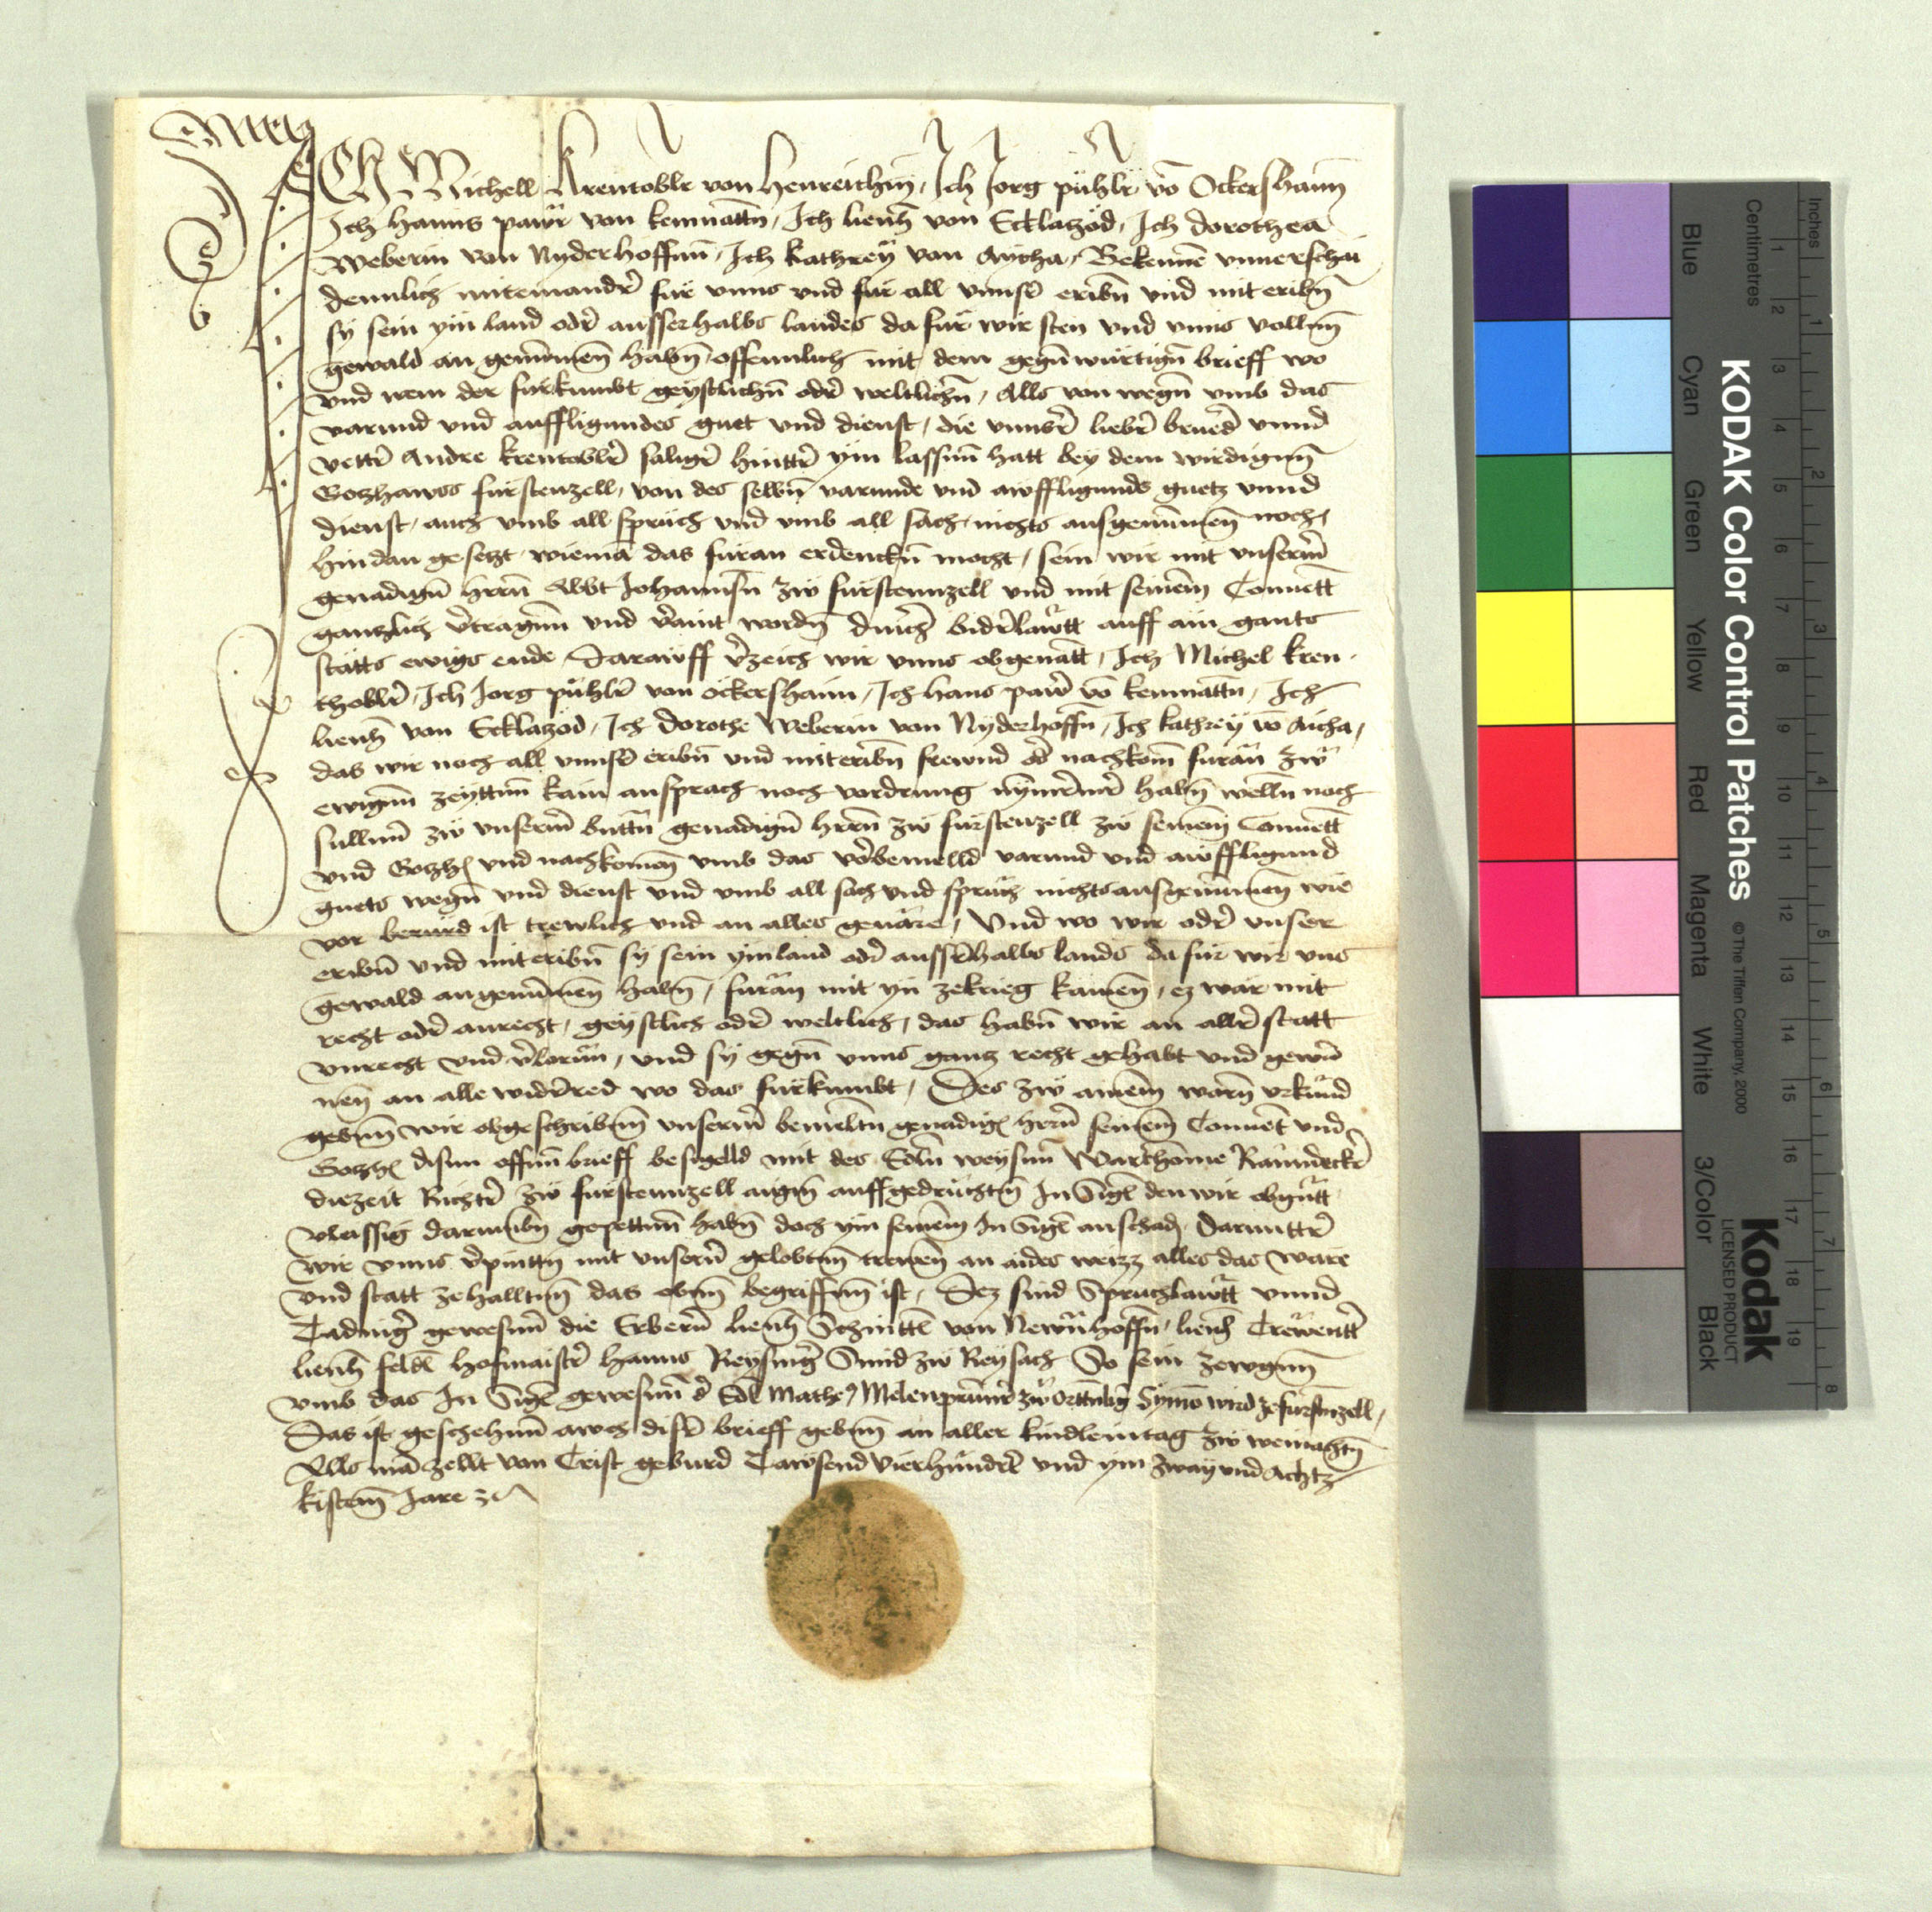 ICh Michell Krentoblr von Henreiching, Ich Jorg pühlr vō Ockershaim
Ich hanns pawr von kemnattn, Ich lienh von Ecklazöd, Ich dorothea
Weberin von Nyderhoffnn, Ich kathrey von Aycha, Bekennē vnuerschai
dennlich miteinandr für vnns vnd für all vnnsr eribn vnd miteribn
sy sein yin land odr ausserhalbs landes da für wir sten vnd vnns vollin
gewald an genumen habn, offennlich mit dem gegnwürtign brieff wo
vnd wem der fürkumbt geystlichn odr weltlichn, Alls von wegn vmb das
varund vnd auffligundes guet vnd dienst, die vnnsr liebr brueder vnnd
vettr Andre krentoblr saligr hinttr yin lassnn hatt bey dem wirdignn
Gotzhawss fürstenzell, von des selbn varunde vnd awffligunds guetz vnnd
dienst, auch vmb all sprüch vnd vmb all sach, nichts ausgenūmen noch
hindan gesetzt, wiemā das füran erdenckn mocht, sein wir mit vnserm
genadign herrn Abbt Johannsn zw fürstennzell vnd mit seinem Conuett
gantzlich vertragnn vnd veraint wordn durch bidrlawtt auff ain gants
statts ewigs ende, Darawff verzeich wir vnns obgenatt, Ich Michel kren
thoblr, Ich Jorg pühlr von öckershaim, Ich hans pawr vō kemnattn, Ich
lienh von Ecklazöd, Ich dorothe Weberin von Nyderhoffn, Ich kathrey vō Aicha,
das wir noch all vnnsr eribn vnd miteribn frewnd odr nachkom füran zw
ewignn zeyttnn kain ansprach noch vordrung nymermer habn welln noch
sullnn zw vnserm genadign herrn zw fürstenzell zw seinem Conuett
vnd Gotzh vnd nachkomen vmb das vorbemelld varund vnd awffligund
guets wegn vnd dienst vnd vmb all sach vnd sprüch nichts ausgenūmen wie
vor berürd ist trewlich vnd an alles geuare, Vnd wo wir odr vnser
eribn vnd miteribn sy sein yinland odr ausserhalbs lands da für wir vns
gewald angenūmen habn, füran mit yn zekrieg kamen, ez war mit
recht odr anrecht, geystlich odr weltlich, das habn wir an allr statt
vnrecht vnd verlorn, vnd sy gegn vnns gantz recht gehabt vnd gewun
nen an alle widerred wo das fürkumbt, Des zw ainem warn vrkund
gebnn wir obgeschribnn vnserm bemeltn genadign herrn seinem Conuent vnd
Gotzh disnn offnn brieff besigelld mit des Edln weysnn Warthome
diezeit Richtr zw fürstennzell aign auffgedrucktn Insigl den wir obgntt
vleissig darumbn gepettnn habn doch yin seinem Insigl anschadn, darunttr
wir vnns verpinttn mit vnsern gelobtn trewen an aides weyz alles das ware
vnd statt zehalltnn das obnn begriffnn ist, Dez sind Spruchlawtt vnnd
Tadinger gewesnn die Erbern lienh Schintl von Newnhoffn, lienh
lienh feldl Hofmaistr Hanns Reysinger Smid zw Reysach So sein zewgnn
vmb das Insigl gewesnn der Edl Mathes zw Orttnbg Symō wird ze fürstnzell,
Das ist geschehnn awch disr brieff gebnn an aller kindleintag zw weinachtn
Alls mā zellt von Crist geburd Tawsend vierhundert vnd yin zway vnd achtz
kistem Jare ze

KODAK Color Control Patches
© The Tiffen Company, 2000
Kodak
LICENSED PRODUCT
Inches
Centimetres
1 2 3 4 5 6 7 8
1 2 3 4 5 6 7 8 9 10 11 12 13 14 15 16 17 18 19
Blue
Cyan
Green
Yellow
Red
Magenta
White
3/Color
Black